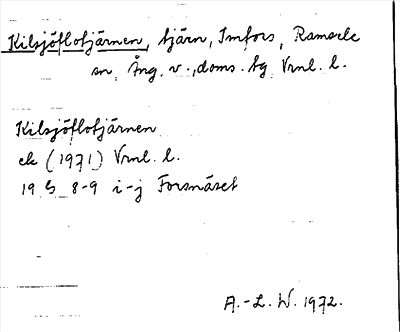 Kilsjöflotjärnen, tjärn, Imfors, Ramsele
sn, Ång. v., doms. tg Vrnl. l.
Kilsjöflotjärnen
ek (1971) Vrnl. l.
19 G 8-9 i-j Forsnäset
A.-L. W. 1972.